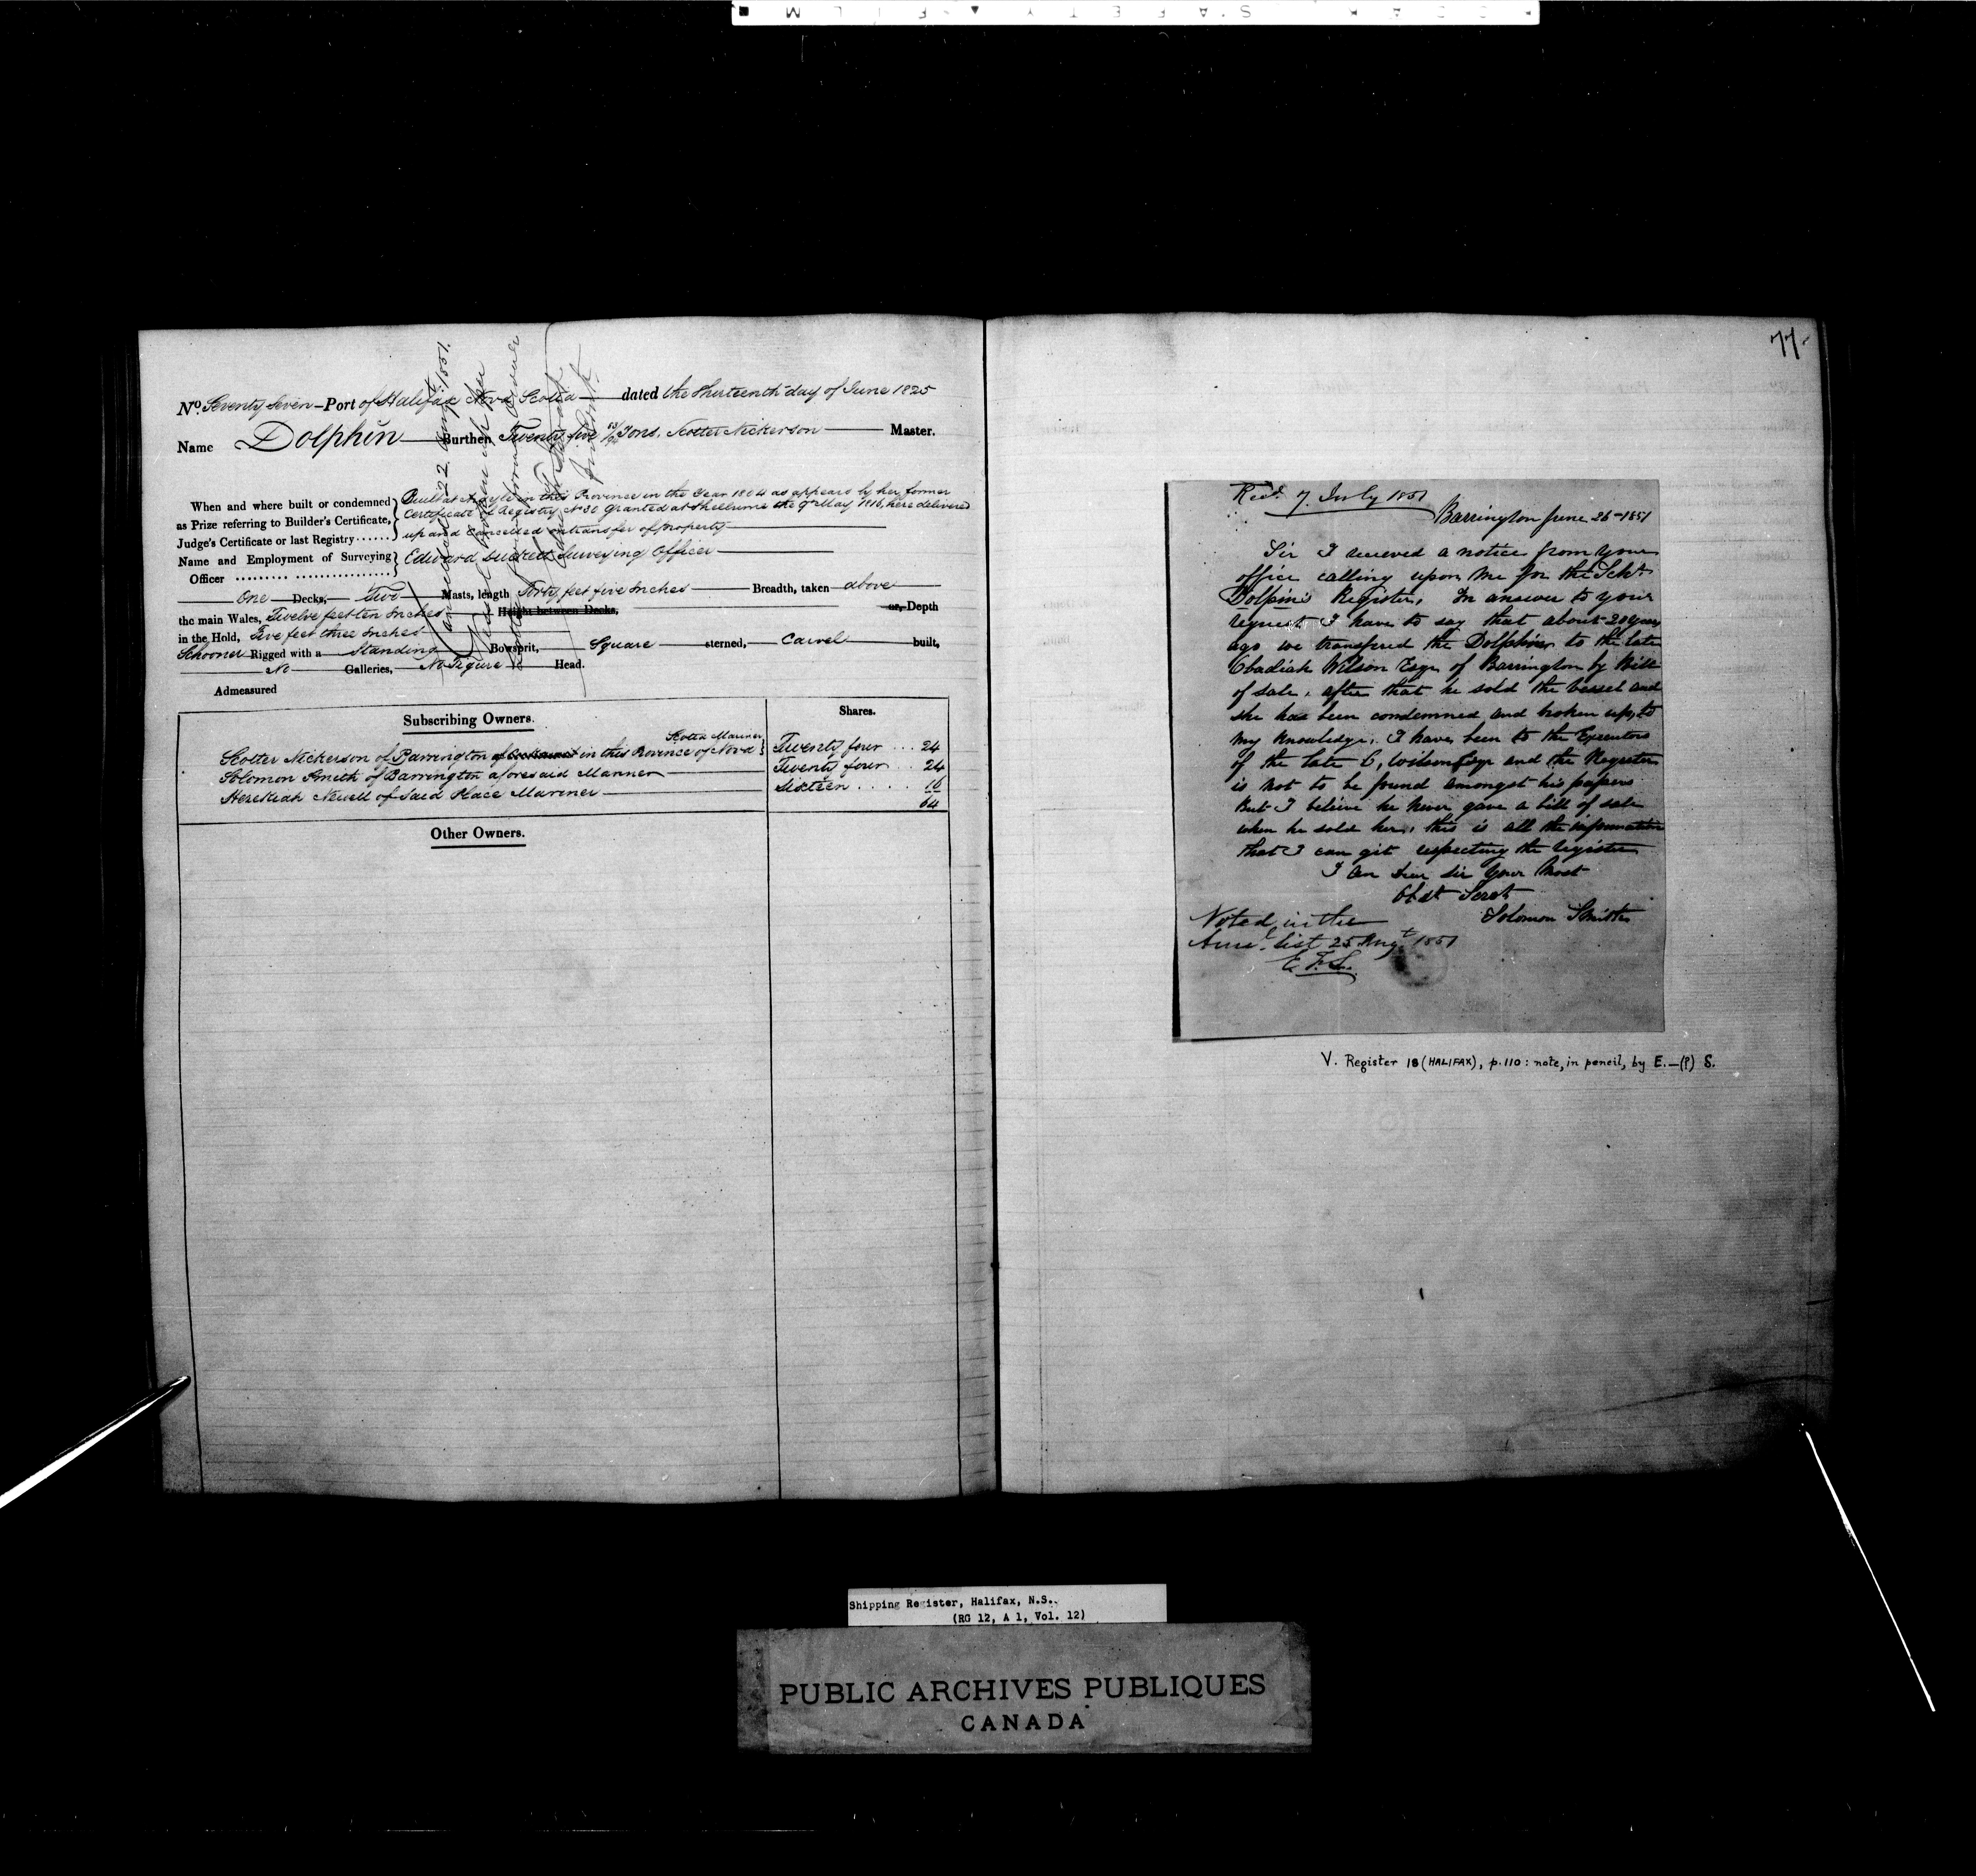 77.
No. Seventy Seven - Port of Halifax Nova Scotia dated the Thirteenth day of June 1825
Name Dolphin Burthen Twenty five 13/94 Tons, Scotter Nickerson Master.
When and where built or condemned as Prize referring to Builder's Certificate, Judge's Certificate or last Registry ......
Built at Argyle in this Province in the Year 1804 as appears by her former
Certificate of Registry No 30 Granted at Shelburne the 9th May 1818, here delivered
up and Cancelled on transfer of property
Name and Employment of Surveying Officer ......... ................
Edward Surveying Officer
One Decks, Two Masts, length Forty feet five Inches Breadth, taken above
the main Wales, Twelve feet ten Inches Height between Decks, or, Depth
in the Hold, Five feet three Inches
Schooner Rigged with a Standing Bowsprit, Square sterned, Carvel built,
No Galleries, No Figure Head.
Admeasured
Subscribing Owners. Shares.
Scotia Mariner
Scotter Nickerson of Barrington in this Province of Nova Twenty four ... 24
Solomon Smith of Barrington aforesaid Mariner Twenty four .. 24
Hezekiah Newell of said Place Mariner Sixteen .... 16
64
Other Owners.
Recd. 7 July 1851
Barrington June 26-1851
Sir I recieved a notice from your
office calling upon me for the Schr
Dolfin's Register, In answer to your
request I have to say that about 20 years
ago we transfered the Dolphin to the late
Obadiah Wilson Esqr of Barrington by Bill
of sale, after that he sold the vessel and
she has been condemned and broken up, to
my knowledge, I have been to the Executors
of the late O, Wilson Esqr and the Register
is not to be found amongst his papers
But I believe he never gave a bill of sale
when he sold her, this is all the information
that I can git respecting the register
I am Dear Sir your most
Obdt Servt
Solomon Smith
Noted in the
Annl. list 25 Augt 1851
V. Register 18 (HALIFAX), p.110: note, in pencil, by E.—(?) S.
Shipping Register, Halifax, N.S..
(RG 12, A 1, Vol. 12)
PUBLIC ARCHIVES PUBLIQUES
CANADA